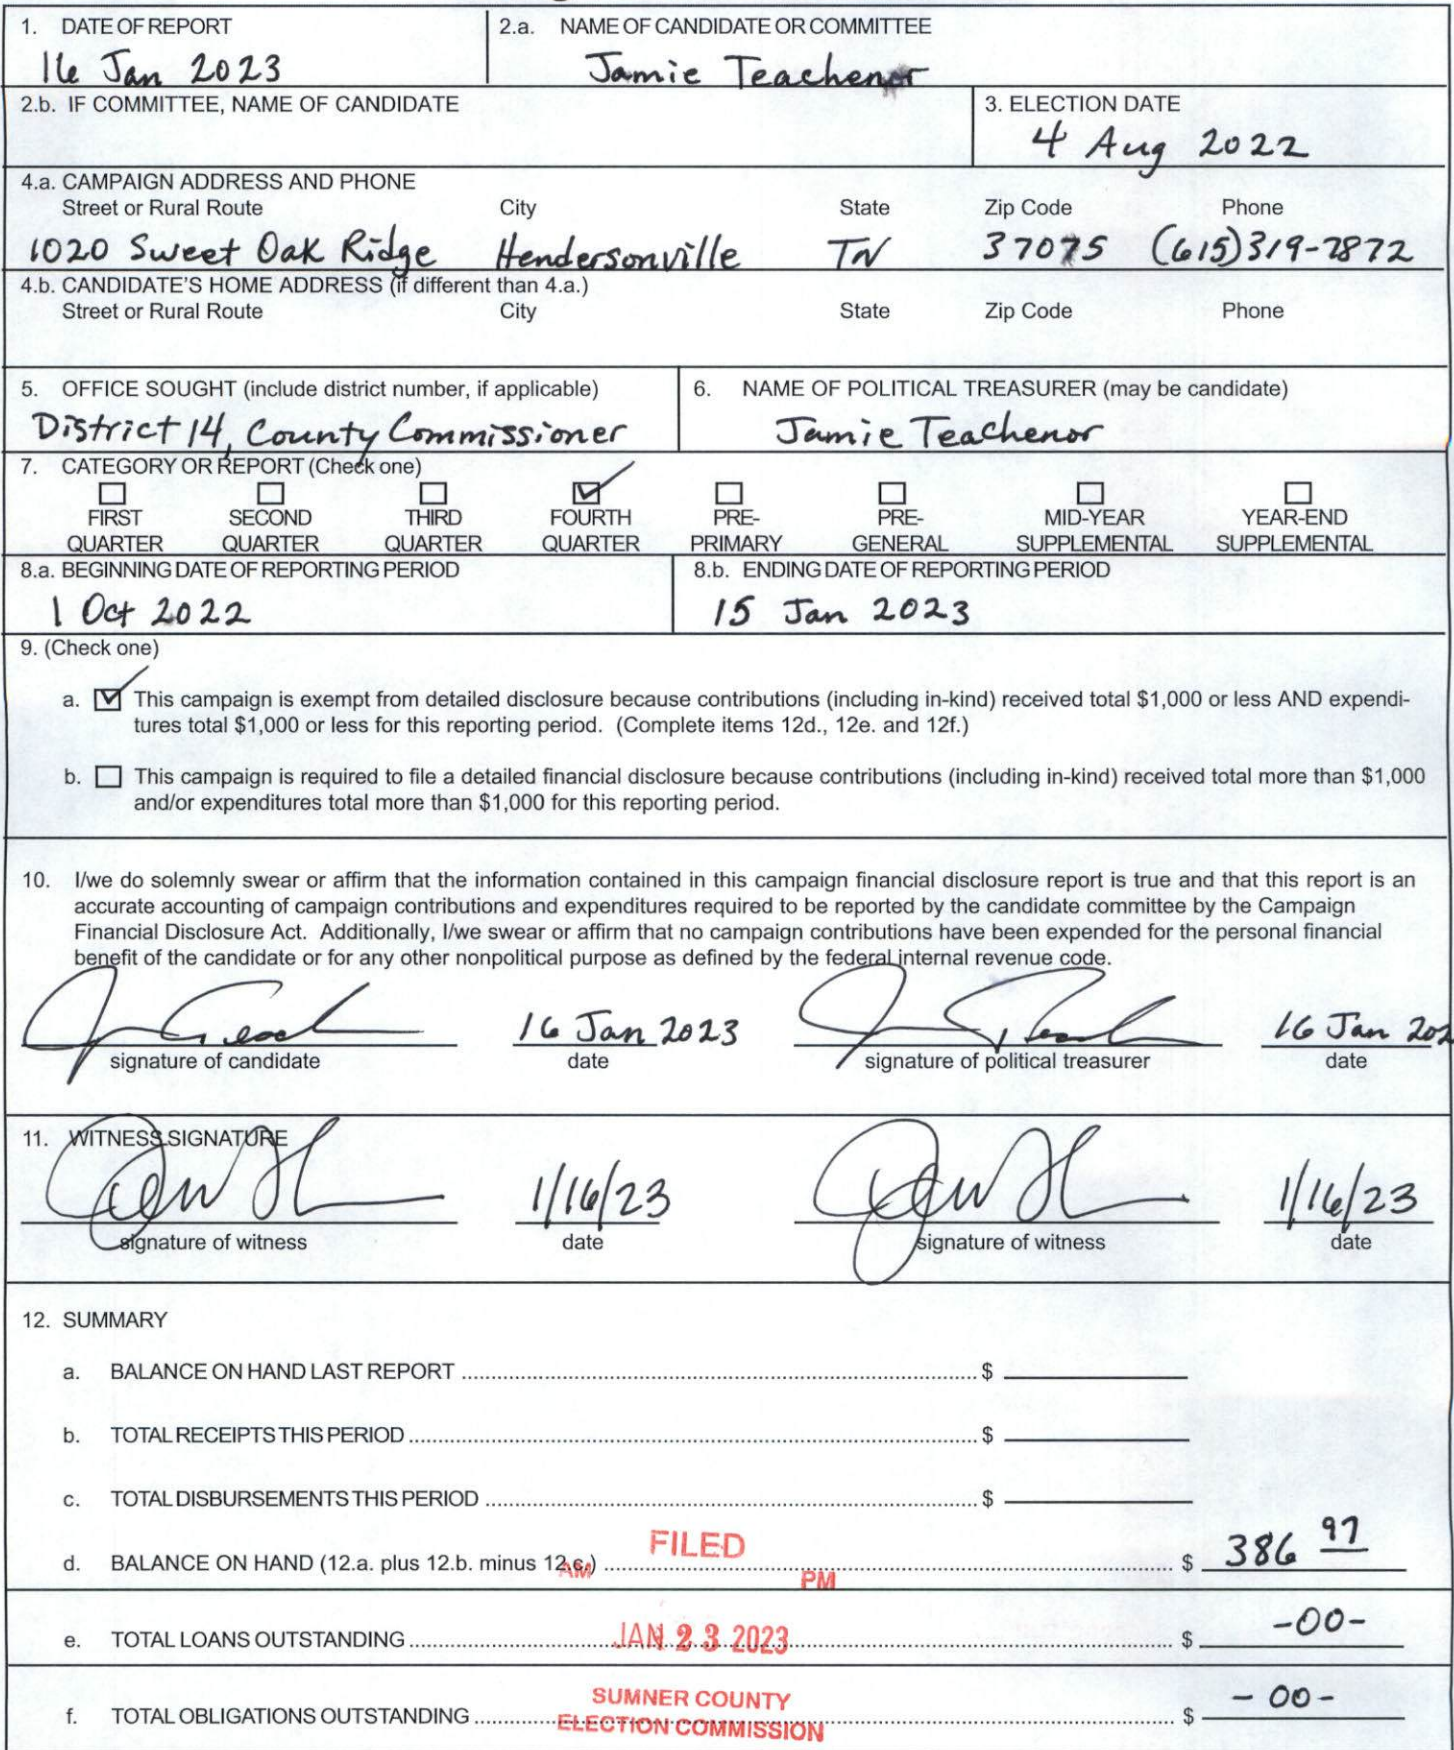 1. DATE OF REPORT 2.a. NAME OF CANDIDATE OR COMMITTEE
16 Jan 2023 Jamie Teachenor
2.b. IF COMMITTEE, NAME OF CANDIDATE 3. ELECTION DATE
4 Aug 2022
4.a. CAMPAIGN ADDRESS AND PHONE
Street or Rural Route City State Zip Code Phone
1020 Sweet Oak Ridge Hendersonville TN 37075 (615)319-7872
4.b. CANDIDATE'S HOME ADDRESS (if different than 4.a.)
Street or Rural Route City State Zip Code Phone
5. OFFICE SOUGHT (include district number, if applicable) 6. NAME OF POLITICAL TREASURER (may be candidate)
District 14, County Commissioner Jamie Teachenor
7. CATEGORY OR REPORT (Check one)
FIRST SECOND THIRD FOURTH PRE- PRE- MID-YEAR YEAR-END
QUARTER QUARTER QUARTER QUARTER PRIMARY GENERAL SUPPLEMENTAL SUPPLEMENTAL
8.a. BEGINNING DATE OF REPORTING PERIOD 8.b. ENDING DATE OF REPORTING PERIOD
1 Oct 2022 15 Jan 2023
9. (Check one)
a. This campaign is exempt from detailed disclosure because contributions (including in-kind) received total $1,000 or less AND expendi-
tures total $1,000 or less for this reporting period. (Complete items 12d., 12e. and 12f.)
b. This campaign is required to file a detailed financial disclosure because contributions (including in-kind) received total more than $1,000
and/or expenditures total more than $1,000 for this reporting period.
10. I/we do solemnly swear or affirm that the information contained in this campaign financial disclosure report is true and that this report is an
accurate accounting of campaign contributions and expenditures required to be reported by the candidate committee by the Campaign
Financial Disclosure Act. Additionally, I/we swear or affirm that no campaign contributions have been expended for the personal financial
benefit of the candidate or for any other nonpolitical purpose as defined by the federal internal revenue code.
16 Jan 2023 16 Jan 202
signature of candidate date signature of political treasurer date
11. WITNESS SIGNATURE
1/16/23 1/16/23
signature of witness date signature of witness date
12. SUMMARY
a. BALANCE ON HAND LAST REPORT $
b. TOTAL RECEIPTS THIS PERIOD $
c. TOTAL DISBURSEMENTS THIS PERIOD $
FILED
d. BALANCE ON HAND (12.a. plus 12.b. minus 12.c.) $ 386 97
AM PM
e. TOTAL LOANS OUTSTANDING JAN 23 2023 $ -00-
SUMNER COUNTY
f. TOTAL OBLIGATIONS OUTSTANDING $ -00-
ELECTION COMMISSION